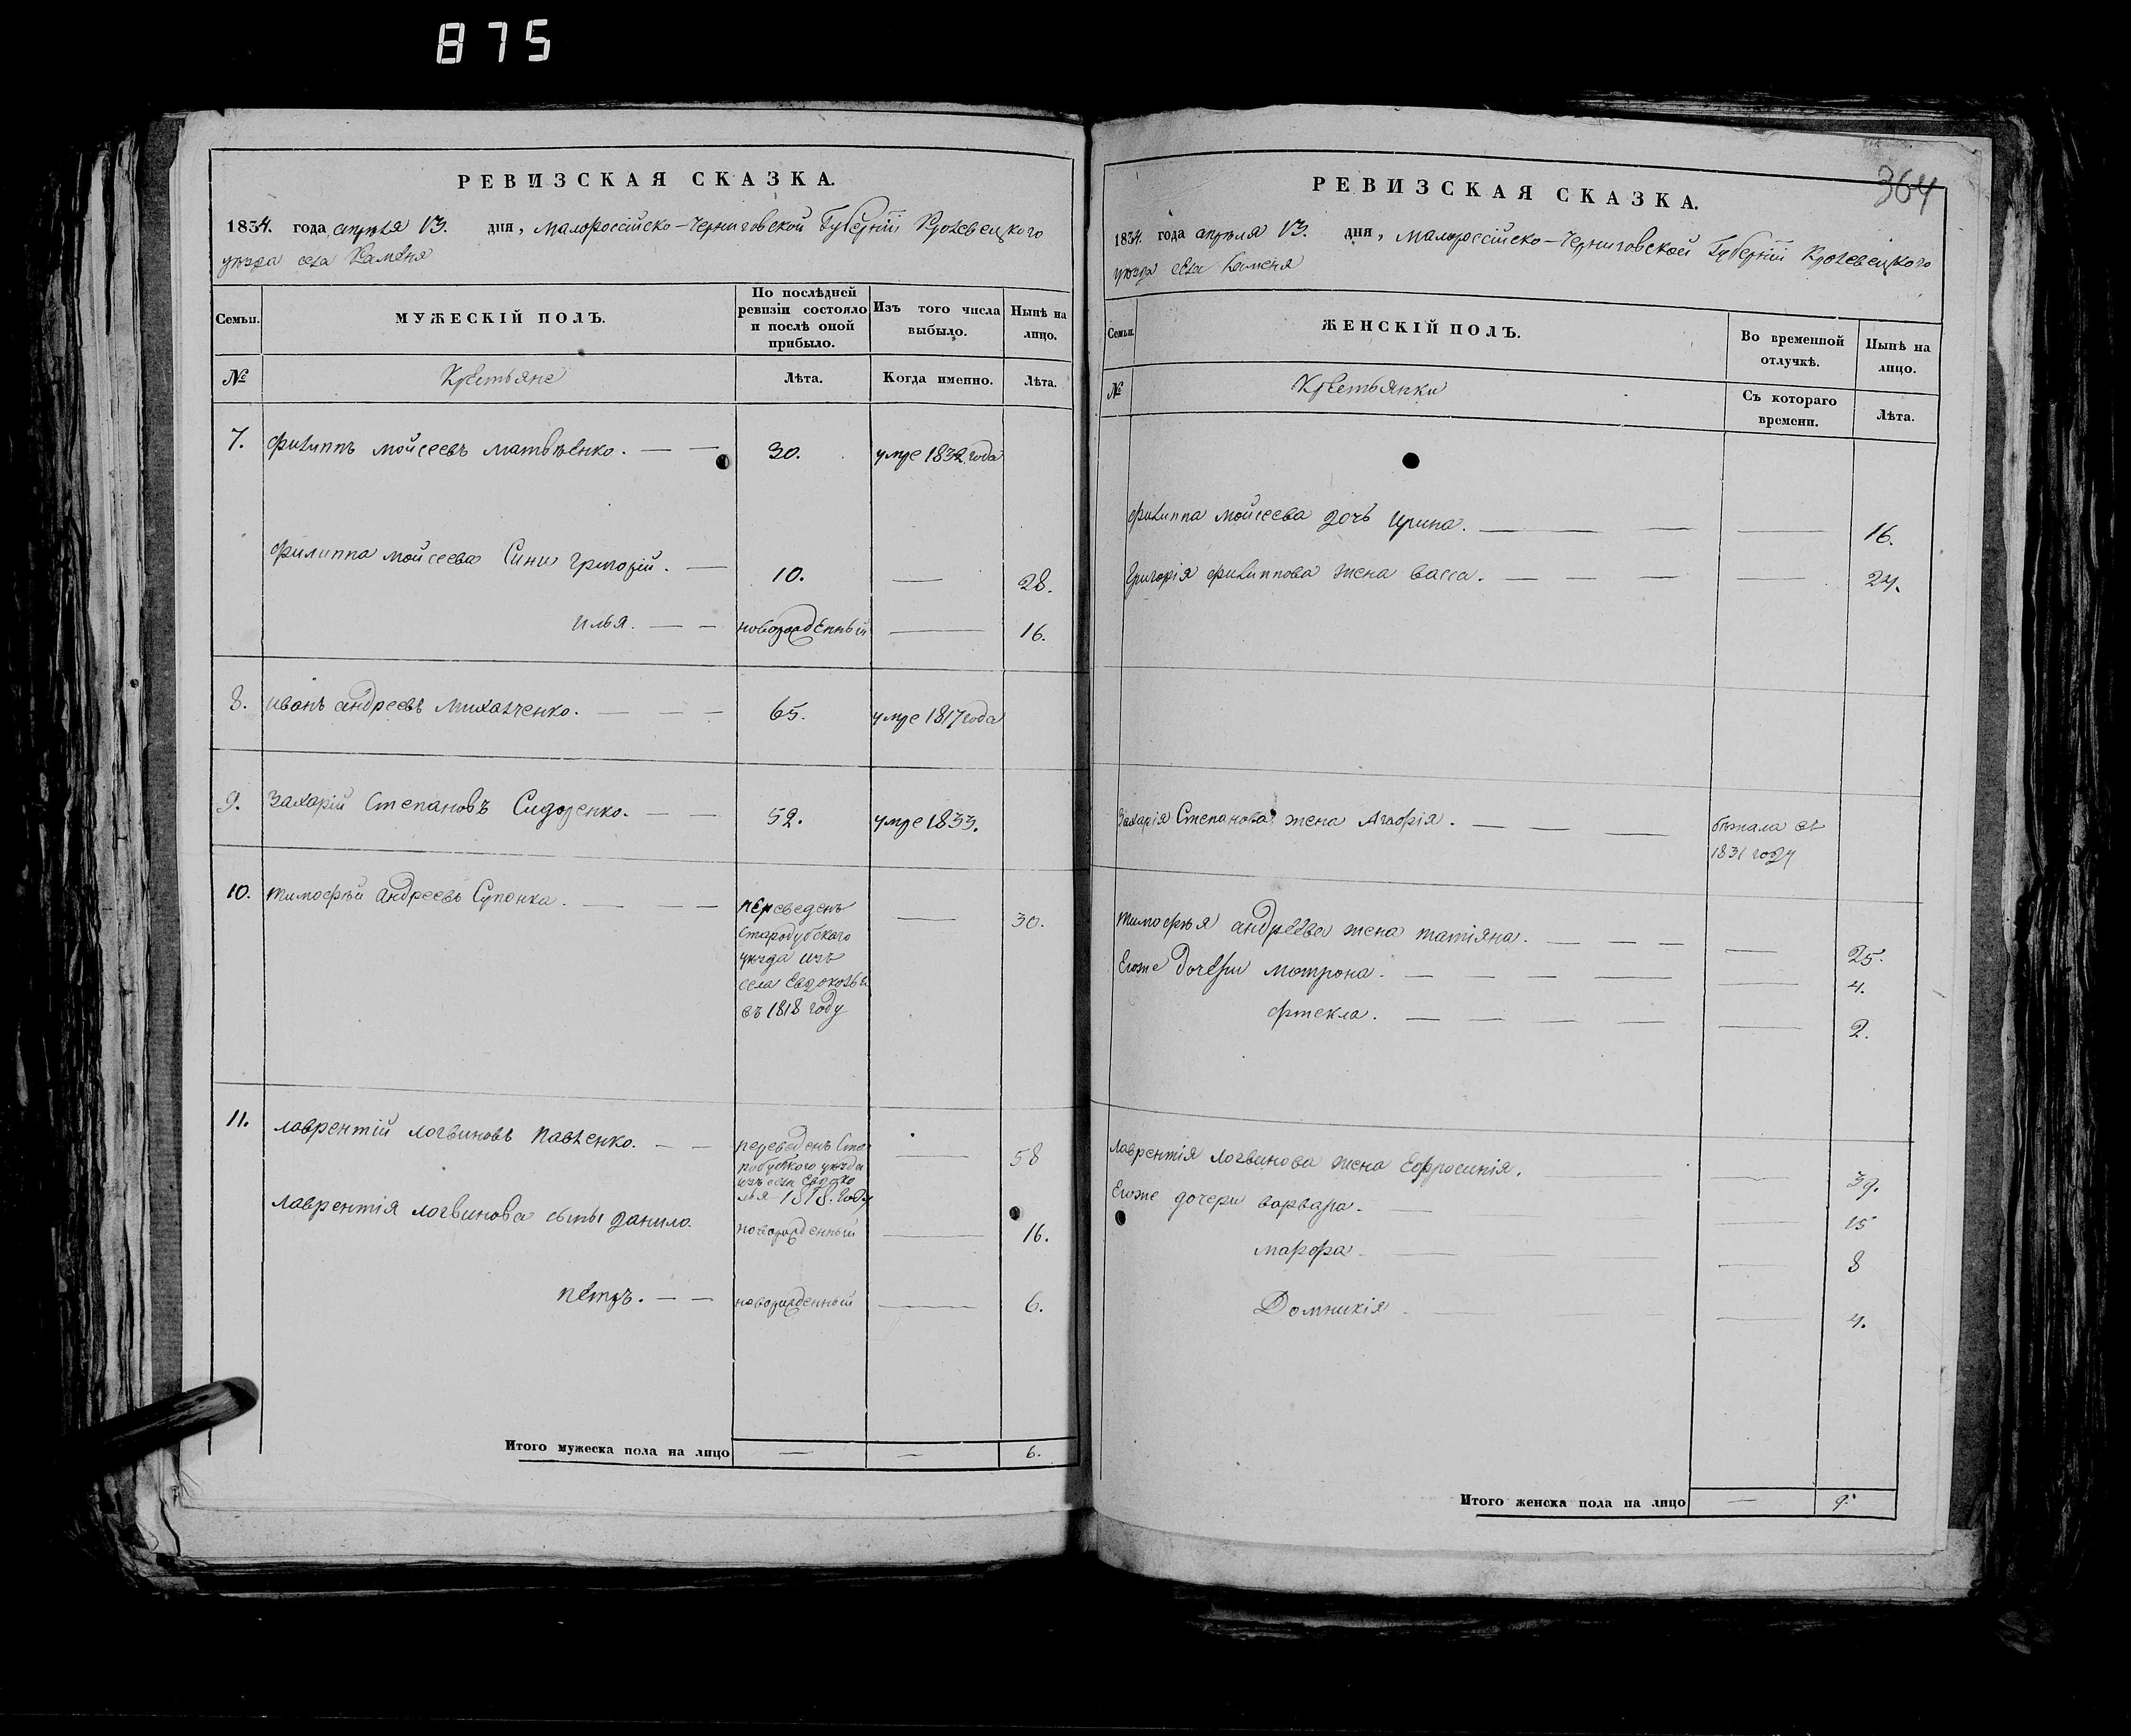 875
РЕВИЗСКАЯ СКАЗКА.
1834. года апреля 13. дня, Малороссійско-Черниговской Губерніи Кролевецкого
уезда села Каменя
Семьи. МУЖЕСКІЙ ПОЛЪ. По послѣдней ревизіи состояло и послѣ оной прибыло. Изъ того числа выбыло. Нынѣ на лицо.
№ Крестьяне Лѣта. Когда именно. Лѣта.
7. Филиппъ Мойсеевъ Матвѣенко. 30. умре 1832 года
Филиппа Мойсеева Сини Григорій. 10. 28.
Илья. новорожденный 16.
8. Иванъ Андреевъ Михалченко. 65. умре 1817 года
9. Захарій Степановъ Сидоренко. 52. умре 1833.
10. Тимофѣй Андреевъ Супонка. переведенъ 30.
Стародубского
уезда изъ
села
въ 1818 году
11. Лаврентій Логвиновъ Павленко. переведенъ Ста 58
родубского уезда
изъ села
1818. году
Лаврентія Логвинова сыны Данило. новорожденный 16.
Петръ. новорожденный 6.
Итого мужеска пола на лицо 6.
364
РЕВИЗСКАЯ СКАЗКА.
1834. года апреля 13. дня, Малороссійско-Черниговской Губерніи Кролевецкого
уезда села Каменя
Семьи. ЖЕНСКІЙ ПОЛЪ. Во временной отлучкѣ. Нынѣ на лицо.
№ Крестьянки Съ котораго времени. Лѣта.
Филиппа Мойсеева дочь Ирина. 16.
Григорія Филиппова жена Васса. 24.
Захарія Степанова жена Агафія. бѣжала въ
1831 году
Тимофѣя Андреева жена Татіяна. 25.
Егоже дочери Мотрона. 4.
Фтекла. 2.
Лаврентія Логвинова жена Ефросинія. 39.
Егоже дочери Варвара. 15
Марфа. 8
Домникія 4.
Итого женска пола на лицо 9.